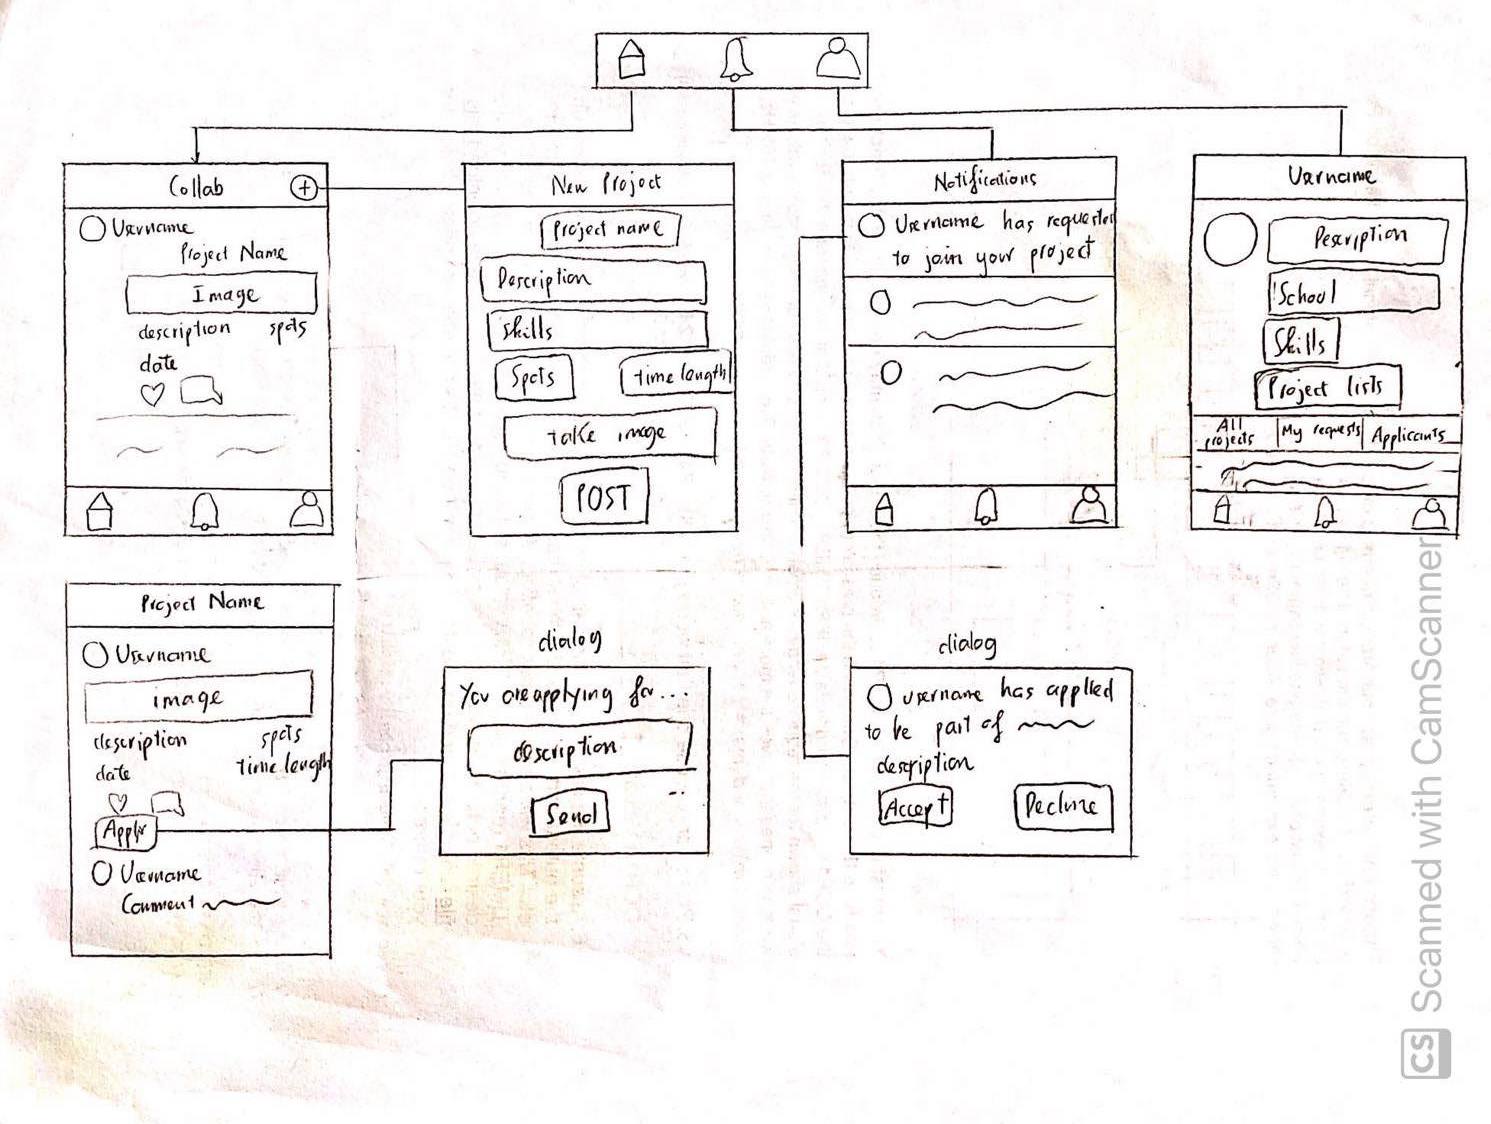 Collab
Username
Project Name
Image
description spots
date
New Project
Project name
Description
Skills
Spots time length
take image
POST
Notifications
Username has requested
to join your project
Username
Description
School
Skills
Project lists
All projects My requests Applicants
Project Name
Username
image
description spots
date time length
Apply
Username
Comment
dialog
You are applying for...
description
Send
dialog
username has applied
to be part of
description
Accept Decline
CS Scanned with CamScanner